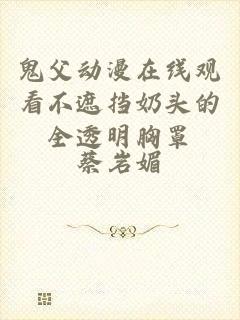 鬼父动漫在线观
看不遮挡奶头的
全透明胸罩
蔡岩媚